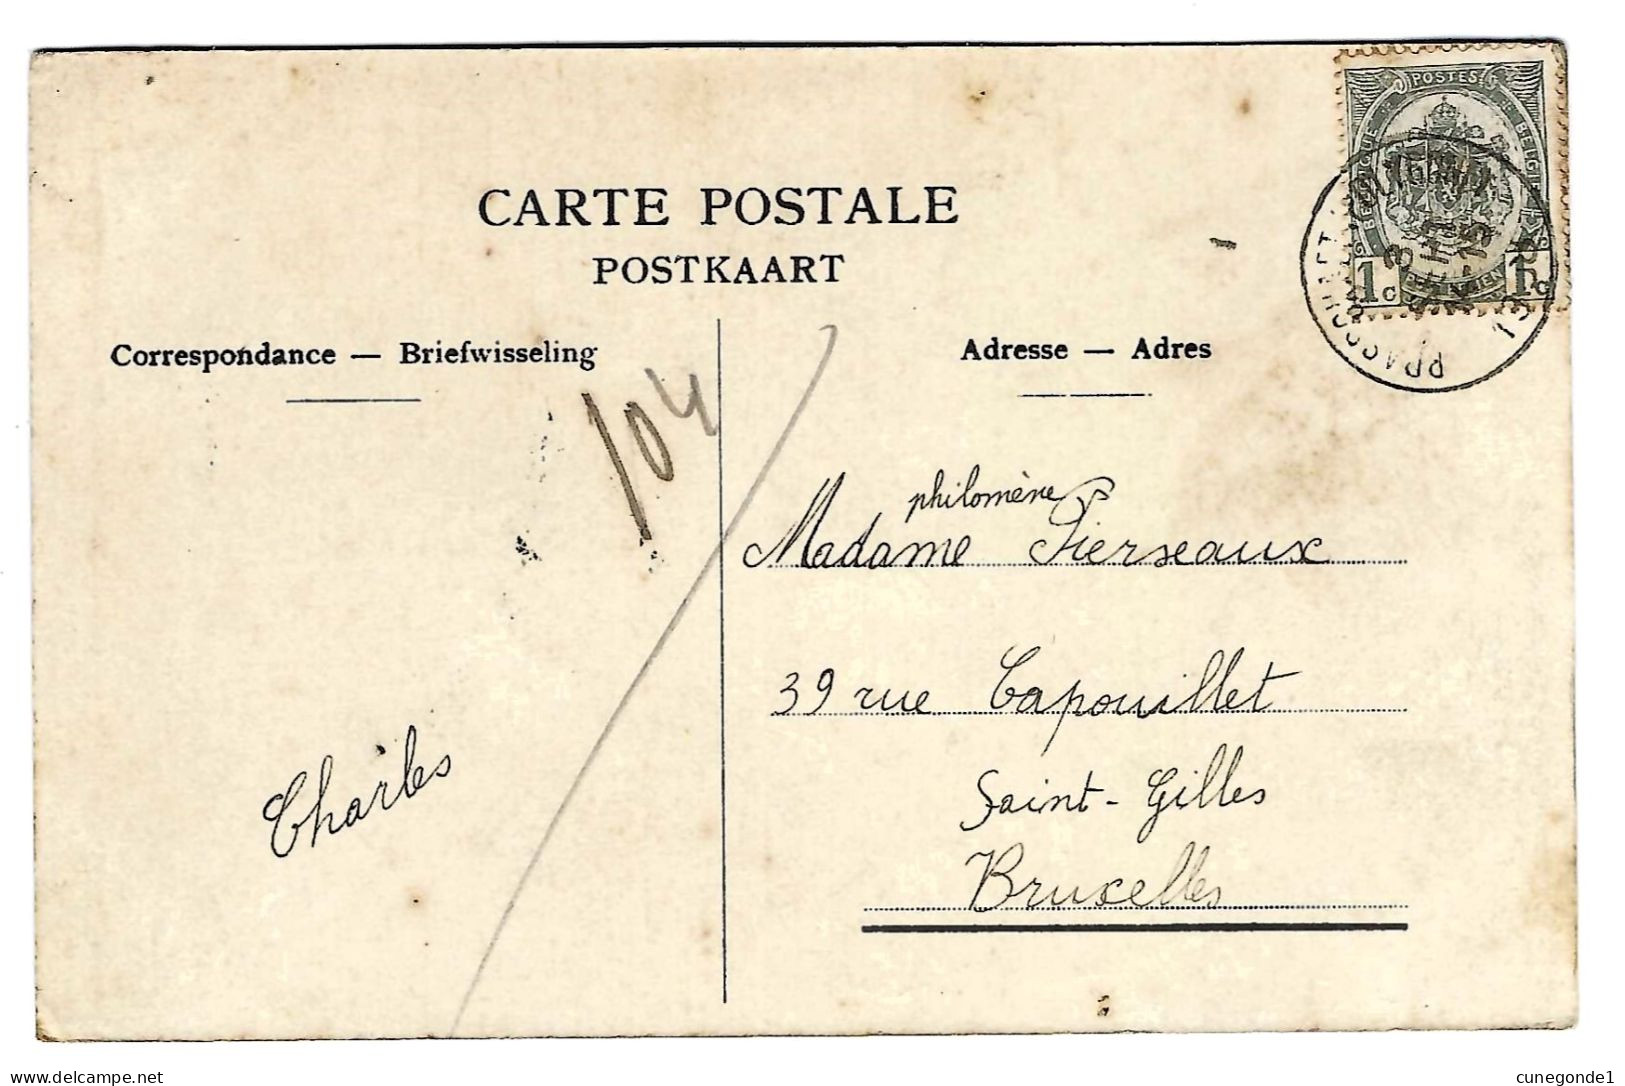 CARTE POSTALE
POSTKAART
Correspondance — Briefwisseling
Adresse — Adres
POSTES
BELGIQUE
BELGIE
1 C
1 C
BRASSCHAET
104
philomène
Madame Pierseaux
39 rue Capouillet
Saint-Gilles
Bruxelles
Charles
www.delcampe.net
cunegonde1